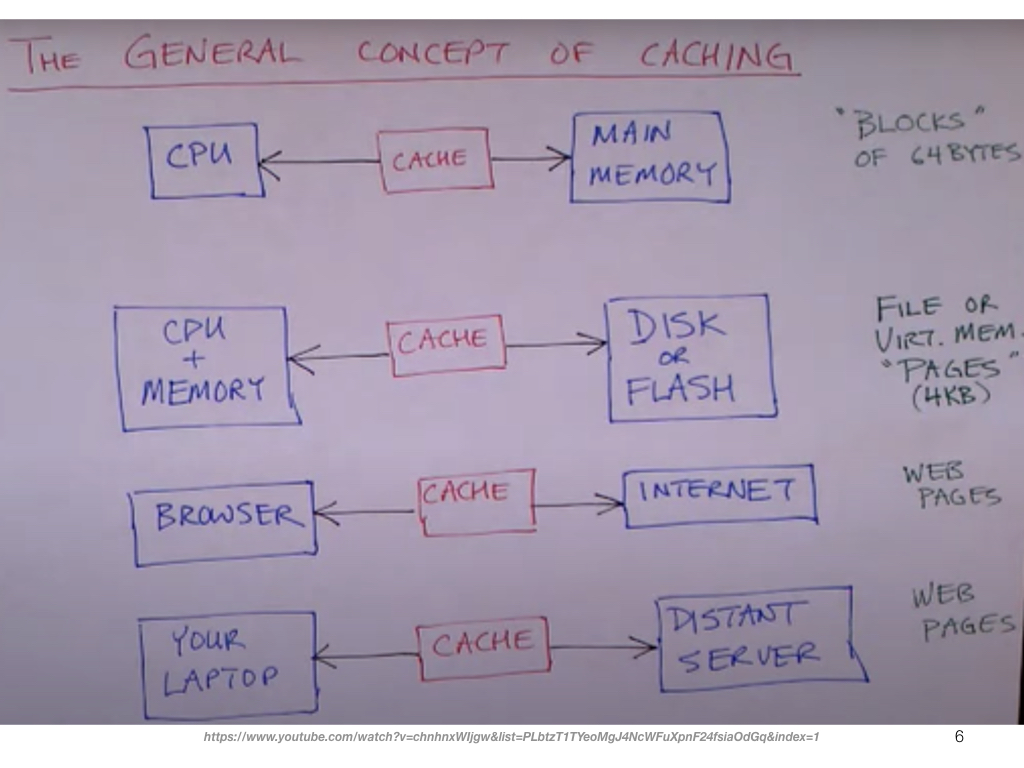 THE GENERAL CONCEPT OF CACHING
CPU
CACHE
MAIN
MEMORY
"BLOCKS"
OF 64 BYTES
CPU
+
MEMORY
CACHE
DISK
OR
FLASH
FILE OR
VIRT. MEM.
"PAGES"
(4KB)
BROWSER
CACHE
INTERNET
WEB
PAGES
YOUR
LAPTOP
CACHE
DISTANT
SERVER
WEB
PAGES
https://www.youtube.com/watch?v=chnhnxWIjgw&list=PLbtzT1TYeoMgJ4NcWFuXpnF24fsiaOdGq&index=1
6